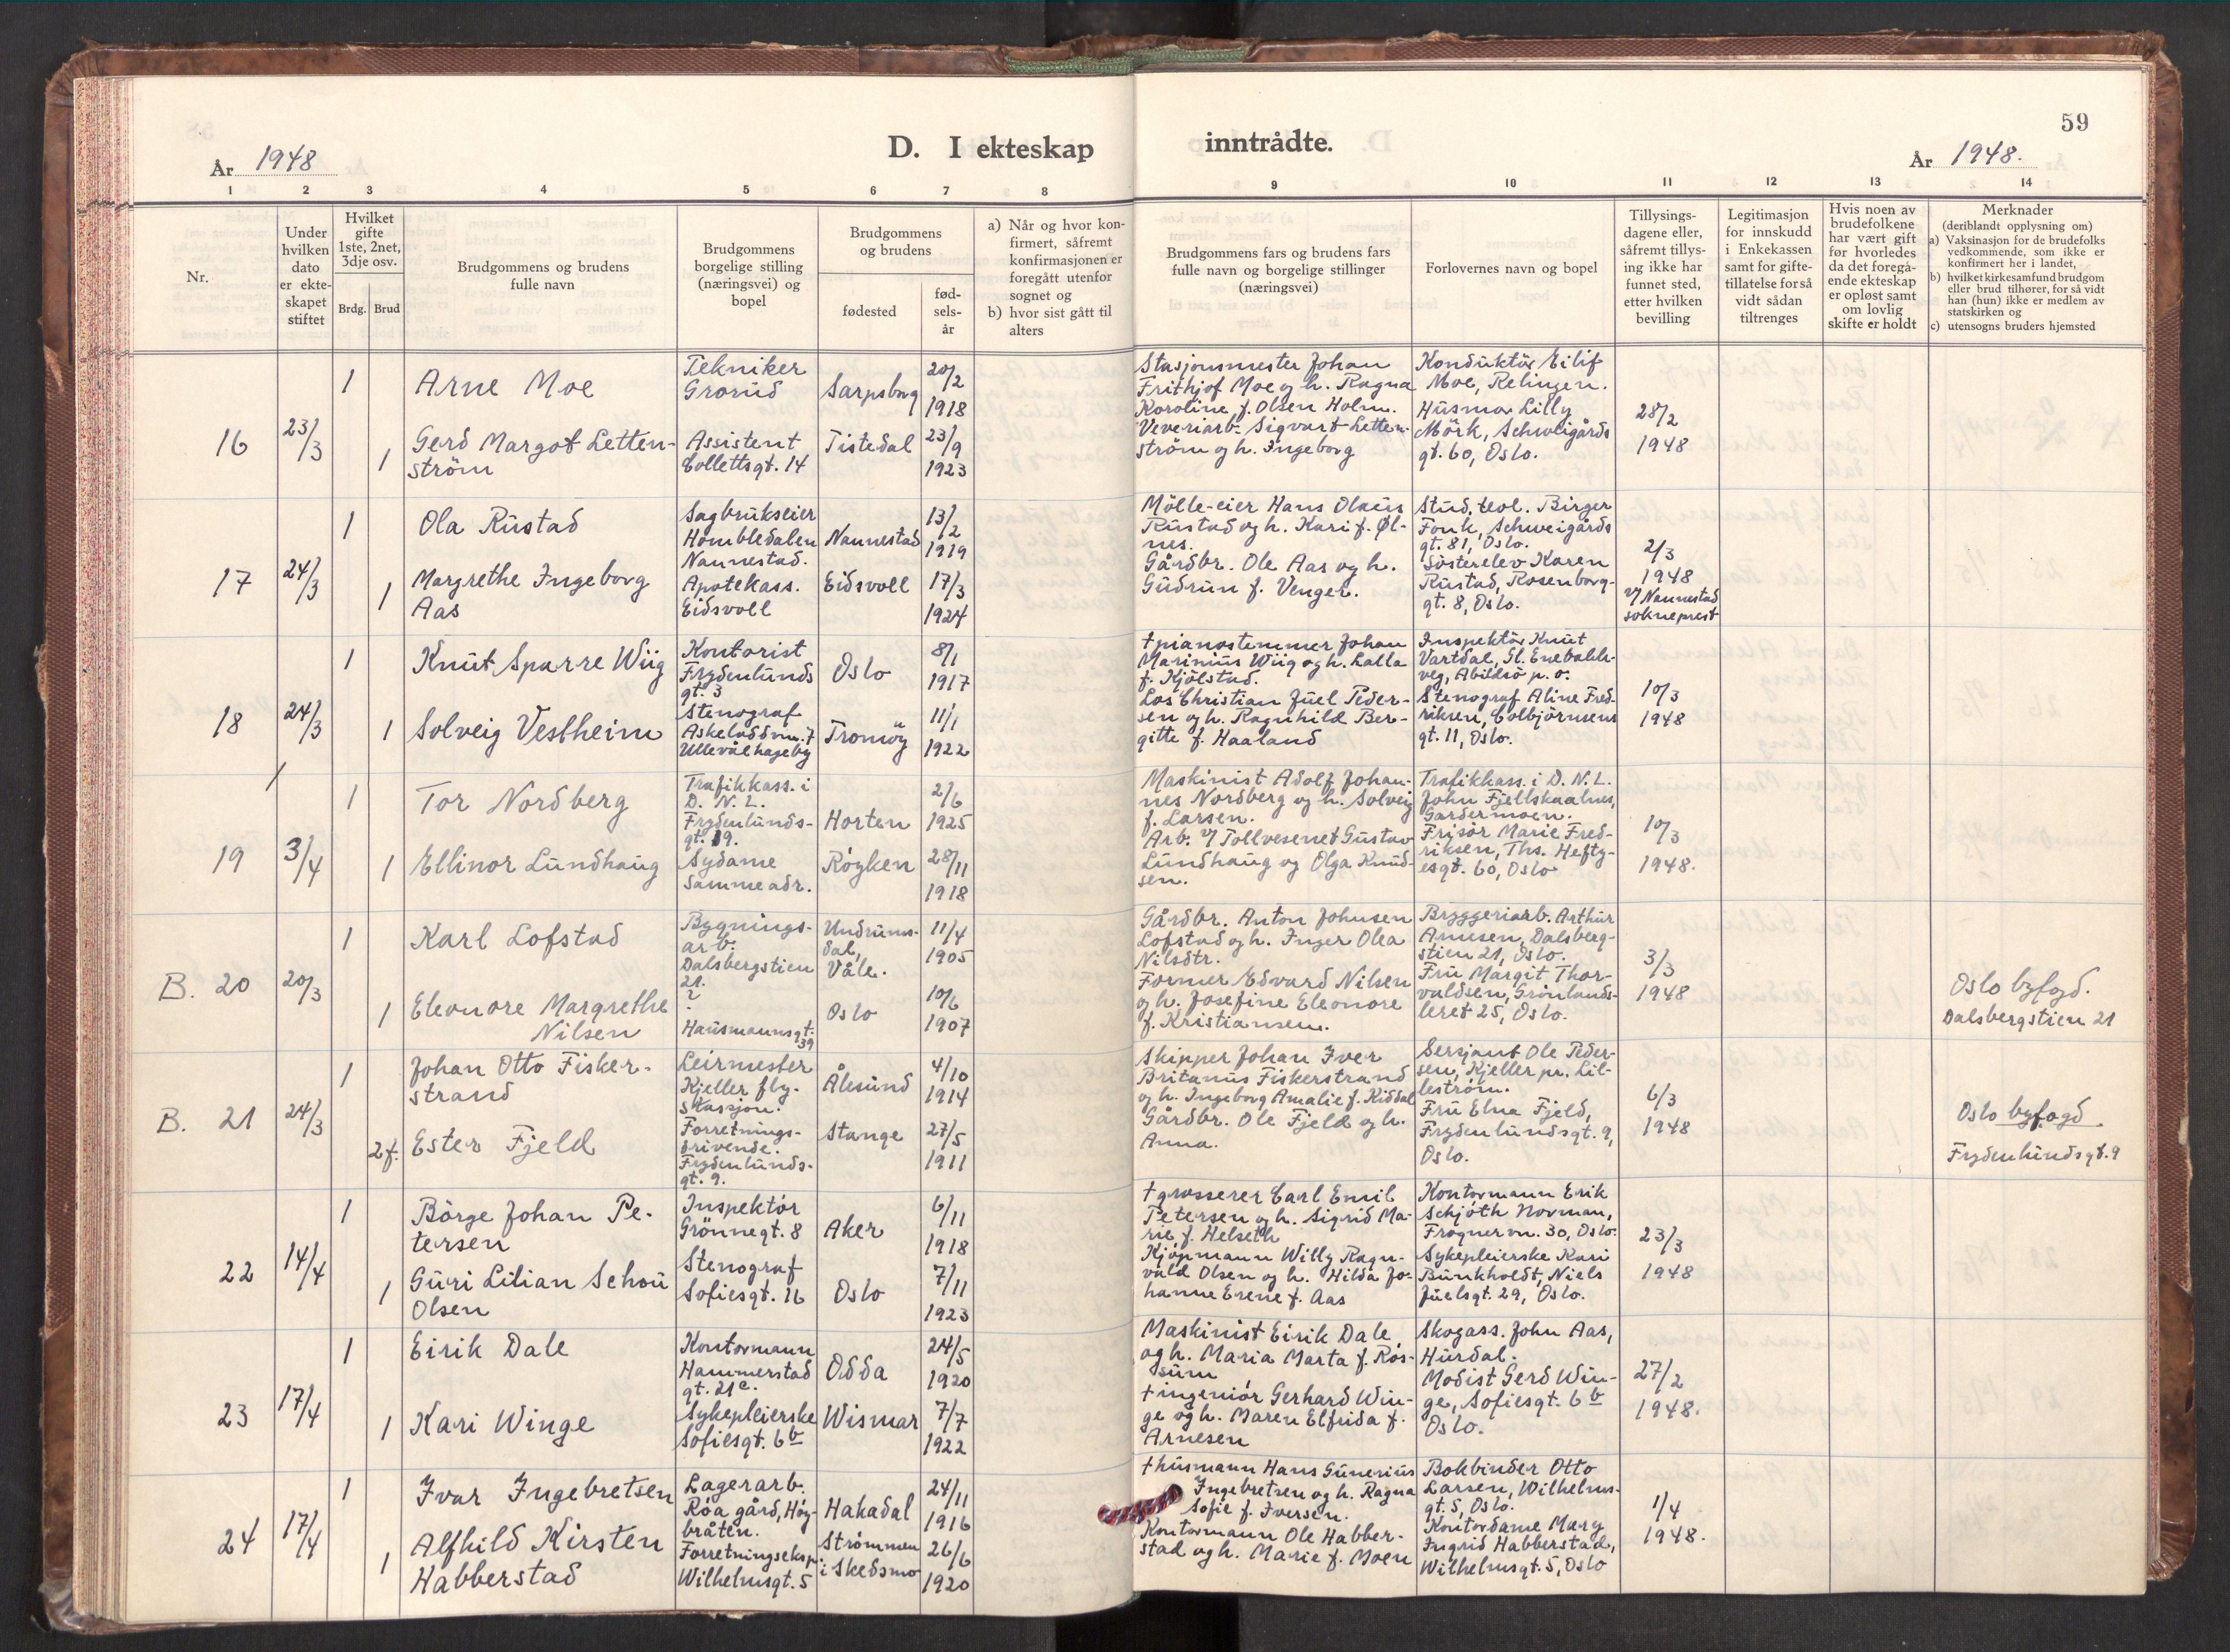 59
D. I ekteskap inntrådte.
År 1948
År 1948.
1 2 3 4 5 6 7 8 9 10 11 12 13 14
Nr.
Under
hvilken
dato
er ekte-
skapet
stiftet
Hvilket
gifte
1ste, 2net,
3dje osv.
Brdg. Brud
Brudgommens og brudens
fulle navn
Brudgommens
borgelige stilling
(næringsvei) og
bopel
Brudgommens
og brudens
fødested
fød-
sels-
år
a) Når og hvor kon-
firmert, såfremt
konfirmasjonen er
foregått utenfor
sognet og
b) hvor sist gått til
alters
Brudgommens fars og brudens fars
fulle navn og borgelige stillinger
(næringsvei)
Forlovernes navn og bopel
Tillysings-
dagene eller,
såfremt tillys-
ing ikke har
funnet sted,
etter hvilken
bevilling
Legitimasjon
for innskudd
i Enkekassen
samt for gifte-
tillatelse forså
vidt sådan
tiltrenges
Hvis noen av
brudefolkene
har vært gift
før hvorledes
da det foregå-
ende ekteskap
er opløst samt
om lovlig
skifte er holdt
Merknader
(deriblandt opplysning om)
a) Vaksinasjon for de brudefolks
vedkommende, som ikke er
konfirmert her i landet,
b) hvilket kirkesamfund brudgom
eller brud tilhører, for så vidt
han (hun) ikke er medlem av
statskirken og
c) utensogns bruders hjemsted
16
23/3
1
Arne Moe
Tekniker
Grorud
Sarpsborg
20/2
1918
1
Gerd Margot Letten-
ström
Assistent
Collettsgt. 14
Tistedal
23/9
1923
Stasjonsmester Johan
Frithjof Moe og h. Ragna
Karoline f. Olsen Holm.
Veveriarb. Sigvart Letten-
ström og h. Ingeborg
Konduktör Eilif
Moe, Relingen.
Husmor Lilly
Mörk, Schweigårds
gt. 60, Oslo.
28/2
1948
17
24/3
1
Ola Rustad
Sagbrukseier
Hombledalen
Nannestad.
Nannestad
13/2
1919
1
Margrethe Ingeborg
Aas
Apotekass.
Eidsvoll
Eidsvoll
17/3
1924
Mölle-eier Hans Olaus
Rustad og h. Kari f. Øl-
nes.
Gårdbr. Ole Aas og h.
Gudrun f. Venger.
Stud. teol. Birger
Fonk, Schweigårds
gt. 81, Oslo.
Söster elev Karen
Rustad, Rosenborg-
gt. 8, Oslo.
2/3
1948
v/ Nannestad
sokneprest
18
24/3
1
Knut Sparre Wiig
Kontorist
Frydenlunds
gt. 3
Oslo
8/1
1917
1
Solveig Vestheim
Stenograf
Askeladdvn. 7
Ullevål hageby
Tromöy
11/1
1922
† pianostemmer Johan
Marinus Wiig og h. Lalla
f. Kjölstad.
Los Christian Juel Peder-
sen og h. Ragnhild Ber-
gitte f. Haaland
Inspektör Knut
Vartdal, Gl. Enebakk-
veg, Abildsö p. o.
Stenograf Aline Fred-
riksen, Colbjörnsens
gt. 11, Oslo.
10/3
1948
19
3/4
1
Tor Nordberg
Trafikkass. i
D. N. L.
Frydenlunds-
gt. 19.
Horten
2/6
1925
1
Ellinor Lundhaug
Sydame
Samme adr.
Röyken
28/11
1918
Maskinist Adolf Johan-
nes Nordberg og h. Solveig
f. Larsen.
Arb. v/ Tollvesenet Gustav
Lundhaug og Olga Knud-
sen.
Trafikkass. i D. N. L.
John Fjellskaalnes,
Gardermoen.
Frisör Marie Fred-
riksen, Ths. Hefty-
esgt. 60, Oslo
10/3
1948.
B. 20
20/3
1
Karl Lofstad
Bygnings-
arb.
Dalsbergstien
21.
Undrums-
dal,
Våle.
11/4
1905
1
Eleonore Margrethe
Nilsen
?
Hausmannsgt.
39
Oslo
10/6
1907
Gårdbr. Anton Johnsen
Lofstad og h. Inger Olea
Nilsdtr.
Former Edvard Nilsen
og h. Josefine Eleonore
f. Kristiansen.
Bryggeriarb. Arthur
Arnesen, Dalsberg-
stien 21, Oslo.
Fru Margit Thor-
valdsen, Grönlands-
leret 25, Oslo.
3/3
1948
Oslo byfogd.
Dalsbergstien 21
B. 21
24/3
1
Johan Otto Fisker-
strand
Leirmester
Kjeller fly-
stasjon.
Ålesund
4/10
1914
2 f.
Ester Fjeld
Forretnings-
drivende.
Frydenlunds-
gt. 9.
Stange
27/5
1911
Skipper Johan Iver
Britanus Fiskerstrand
og h. Ingeborg Amalie f. Kiddal
Gårdbr. Ole Fjeld og h.
Anna.
Sersjant Ole Peder-
sen, Kjeller pr. Lil-
leström.
Fru Elna Fjeld,
Frydenlundsgt. 9,
Oslo.
6/3
1948
Oslo byfogd
Frydenlundsgt. 9
22
14/4
1
Börge Johan Pe-
tersen
Inspektör
Grönnegt. 8
Aker
6/11
1918
1
Guri Lilian Schou
Olsen
Stenograf
Sofiesgt. 16
Oslo
7/11
1923
† grosserer Carl Emil
Petersen og h. Sigrid Ma-
rie f. Helseth
Kjöpmann Willy Ragn-
vald Olsen og h. Hilda Jo-
hanne Erene f. Aas
Kontormann Erik
Schjöth Norman,
Frognervn. 30, Oslo.
Sykepleierske Kari
Bunkholdt, Niels
Juelsgt. 29, Oslo.
23/3
1948
23
17/4
1
Eirik Dale
Kontormann
Hammerstad
gt. 21c.
Odda
24/5
1920
1
Kari Winge
Sykepleierske
Sofiesgt. 6b
Wismar
7/7
1922
Maskinist Eirik Dale
og h. Maria Marta f. Rós-
sum
† ingeniör Gerhard Win-
ge og h. Maren Elfrida f.
Arnesen
Skogass. John Aas,
Hurdal.
Modist Gerd Win-
ge, Sofiesgt. 6b
Oslo.
27/2
1948.
24
17/4
1
Ivar Ingebretsen
Lagerarb.
Röa gård, Höy-
bråten.
Hakadal
24/11
1916
1
Alfhild Kirsten
Habberstad
Forretningseksp.
Wilhelmsgt. 5
Strömmen
i Skedsmo
26/6
1920
† husmann Hans Gunerius
Ingebretsen og h. Ragna
Sofie f. Iversen.
Kontormann Ole Habber-
stad og h. Marie f. Moen
Bokbinder Otto
Larsen, Wilhelms-
gt. 5, Oslo.
Kontordame Mary
Ingrid Habberstad,
Wilhelmsgt. 5, Oslo
1/4
1948.